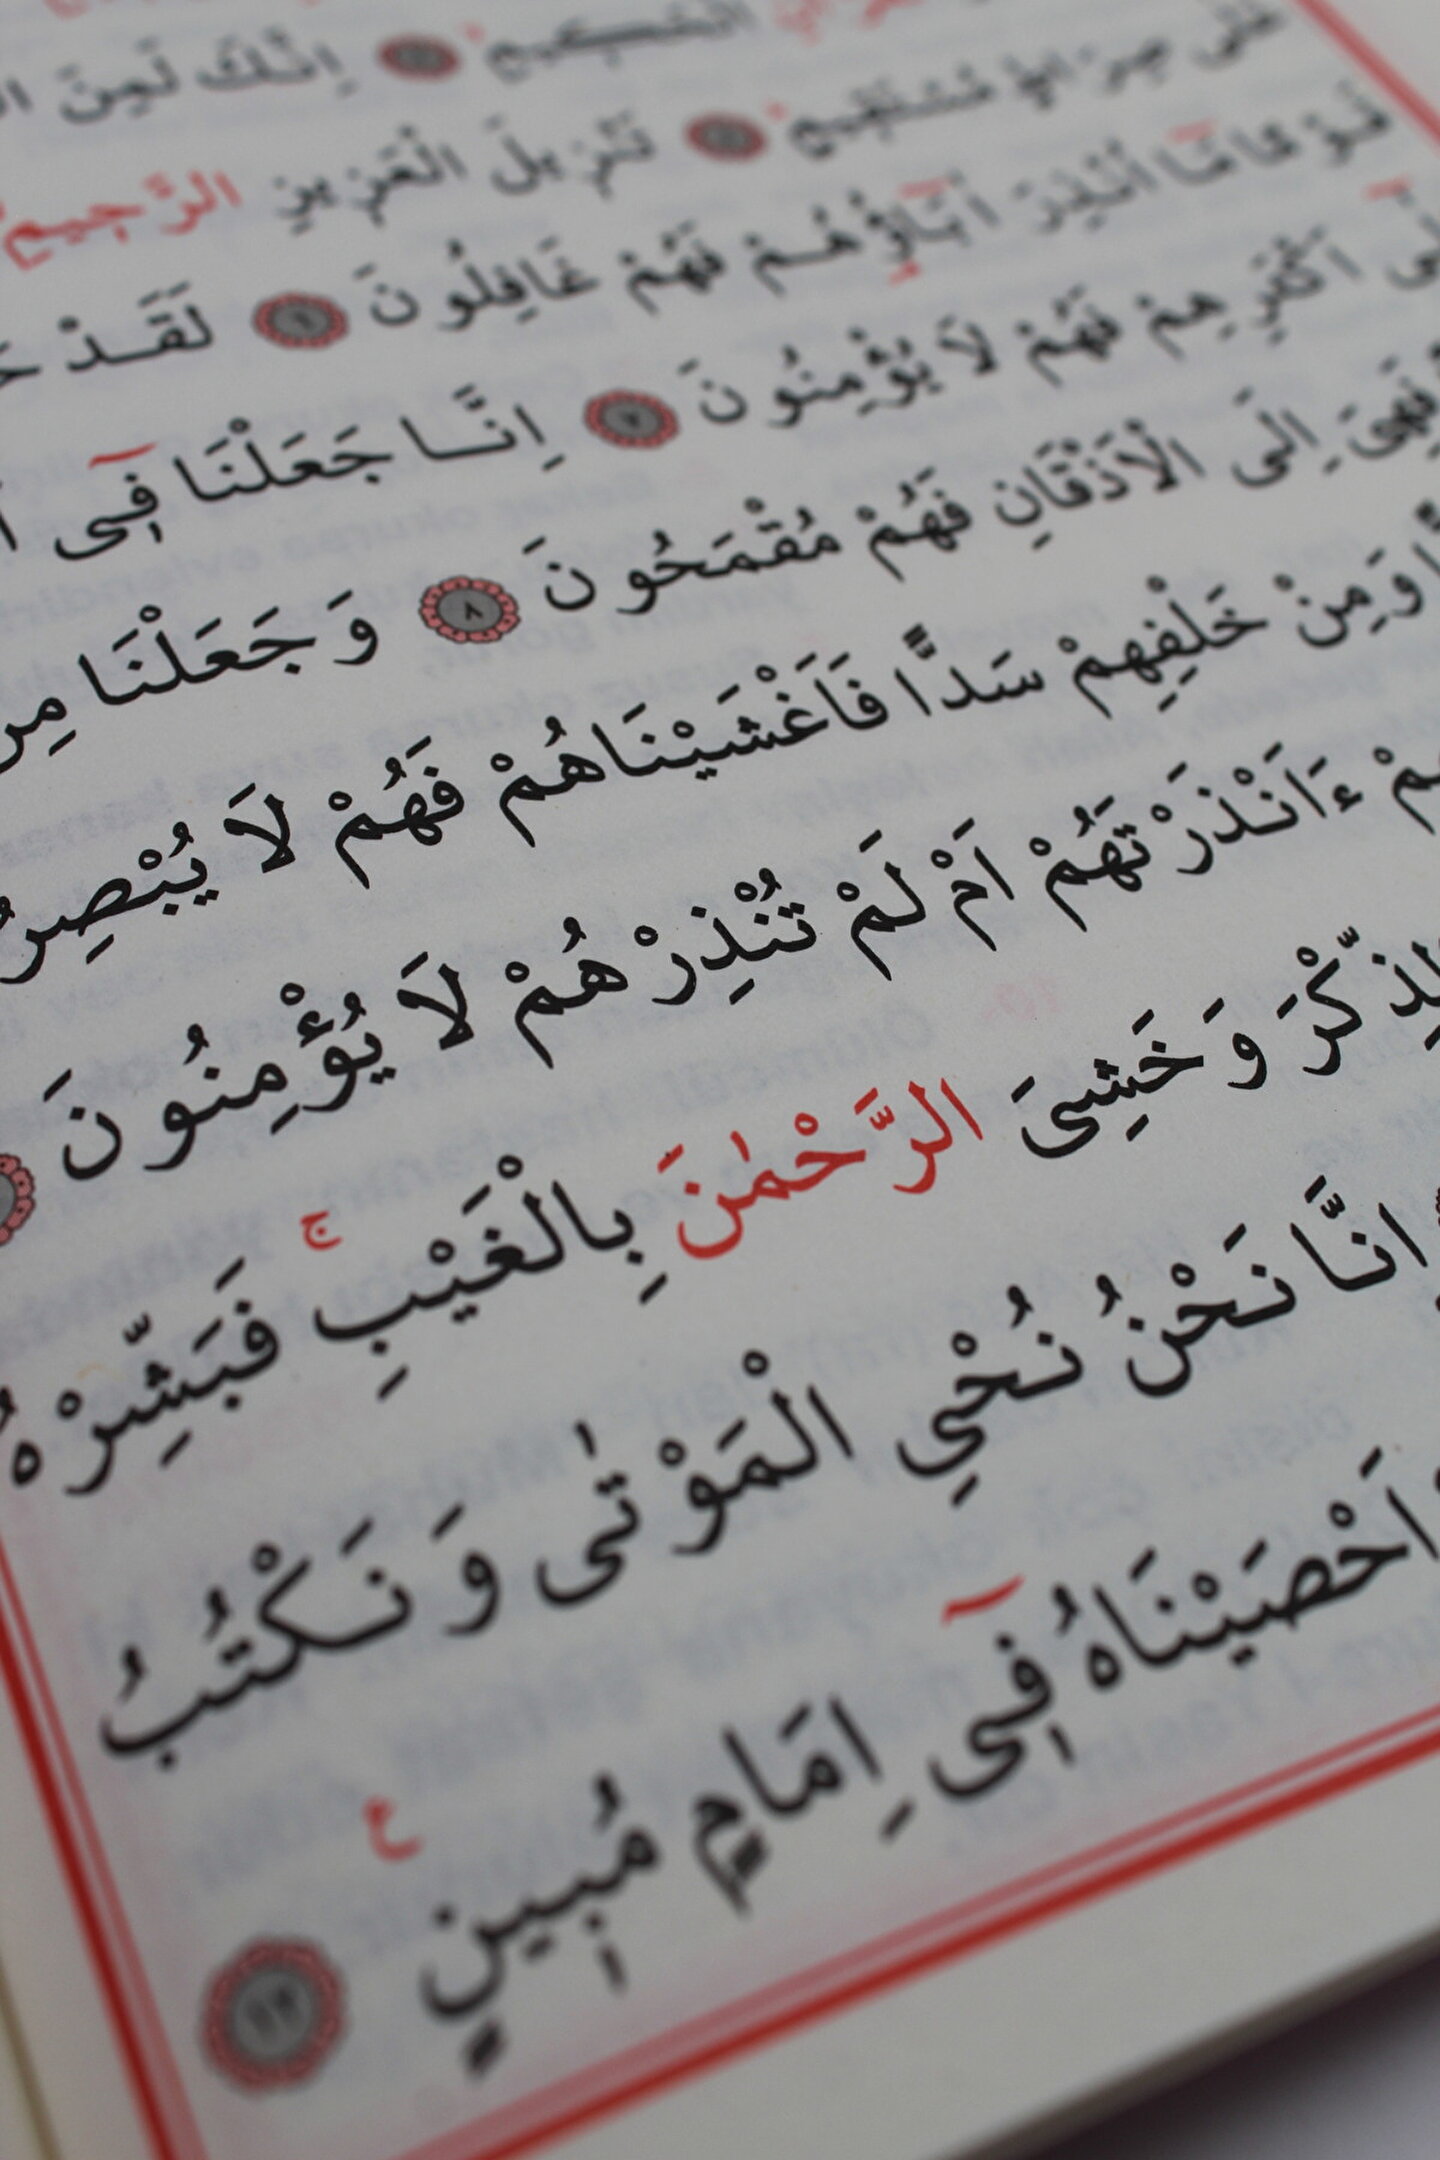 الْحَكِيمِ ﴿٢﴾ اِنَّكَ لَمِنَ
عَلٰى صِرَاطٍ مُسْتَقِيمٍ ﴿٤﴾ تَنْزِيلَ الْعَزِيزِ الرَّحِيمِ
قَوْمًا مَٓا اُنْذِرَ اٰبَٓاؤُ۬هُمْ فَهُمْ غَافِلُونَ ﴿٦﴾ لَقَدْ
اَكْثَرِهِمْ فَهُمْ لَا يُؤْمِنُونَ ﴿٧﴾ اِنَّا جَعَلْنَا فٓى
فَهِىَ اِلَى الْاَذْقَانِ فَهُمْ مُقْمَحُونَ ﴿٨﴾ وَجَعَلْنَا مِنْ
وَمِنْ خَلْفِهِمْ سَدًّا فَاَغْشَيْنَاهُمْ فَهُمْ لَا يُبْصِرُ
ءَاَنْذَرْتَهُمْ اَمْ لَمْ تُنْذِرْهُمْ لَا يُؤْمِنُونَ
الذِّكْرَ وَخَشِىَ الرَّحْمٰنَ بِالْغَيْبِ ۚ فَبَشِّرْهُ
اِنَّا نَحْنُ نُحْيِ الْمَوْتٰى وَنَكْتُبُ
اَحْصَيْنَاهُ فٓى اِمَامٍ مُبٖينٍ ع ﴿١٢﴾